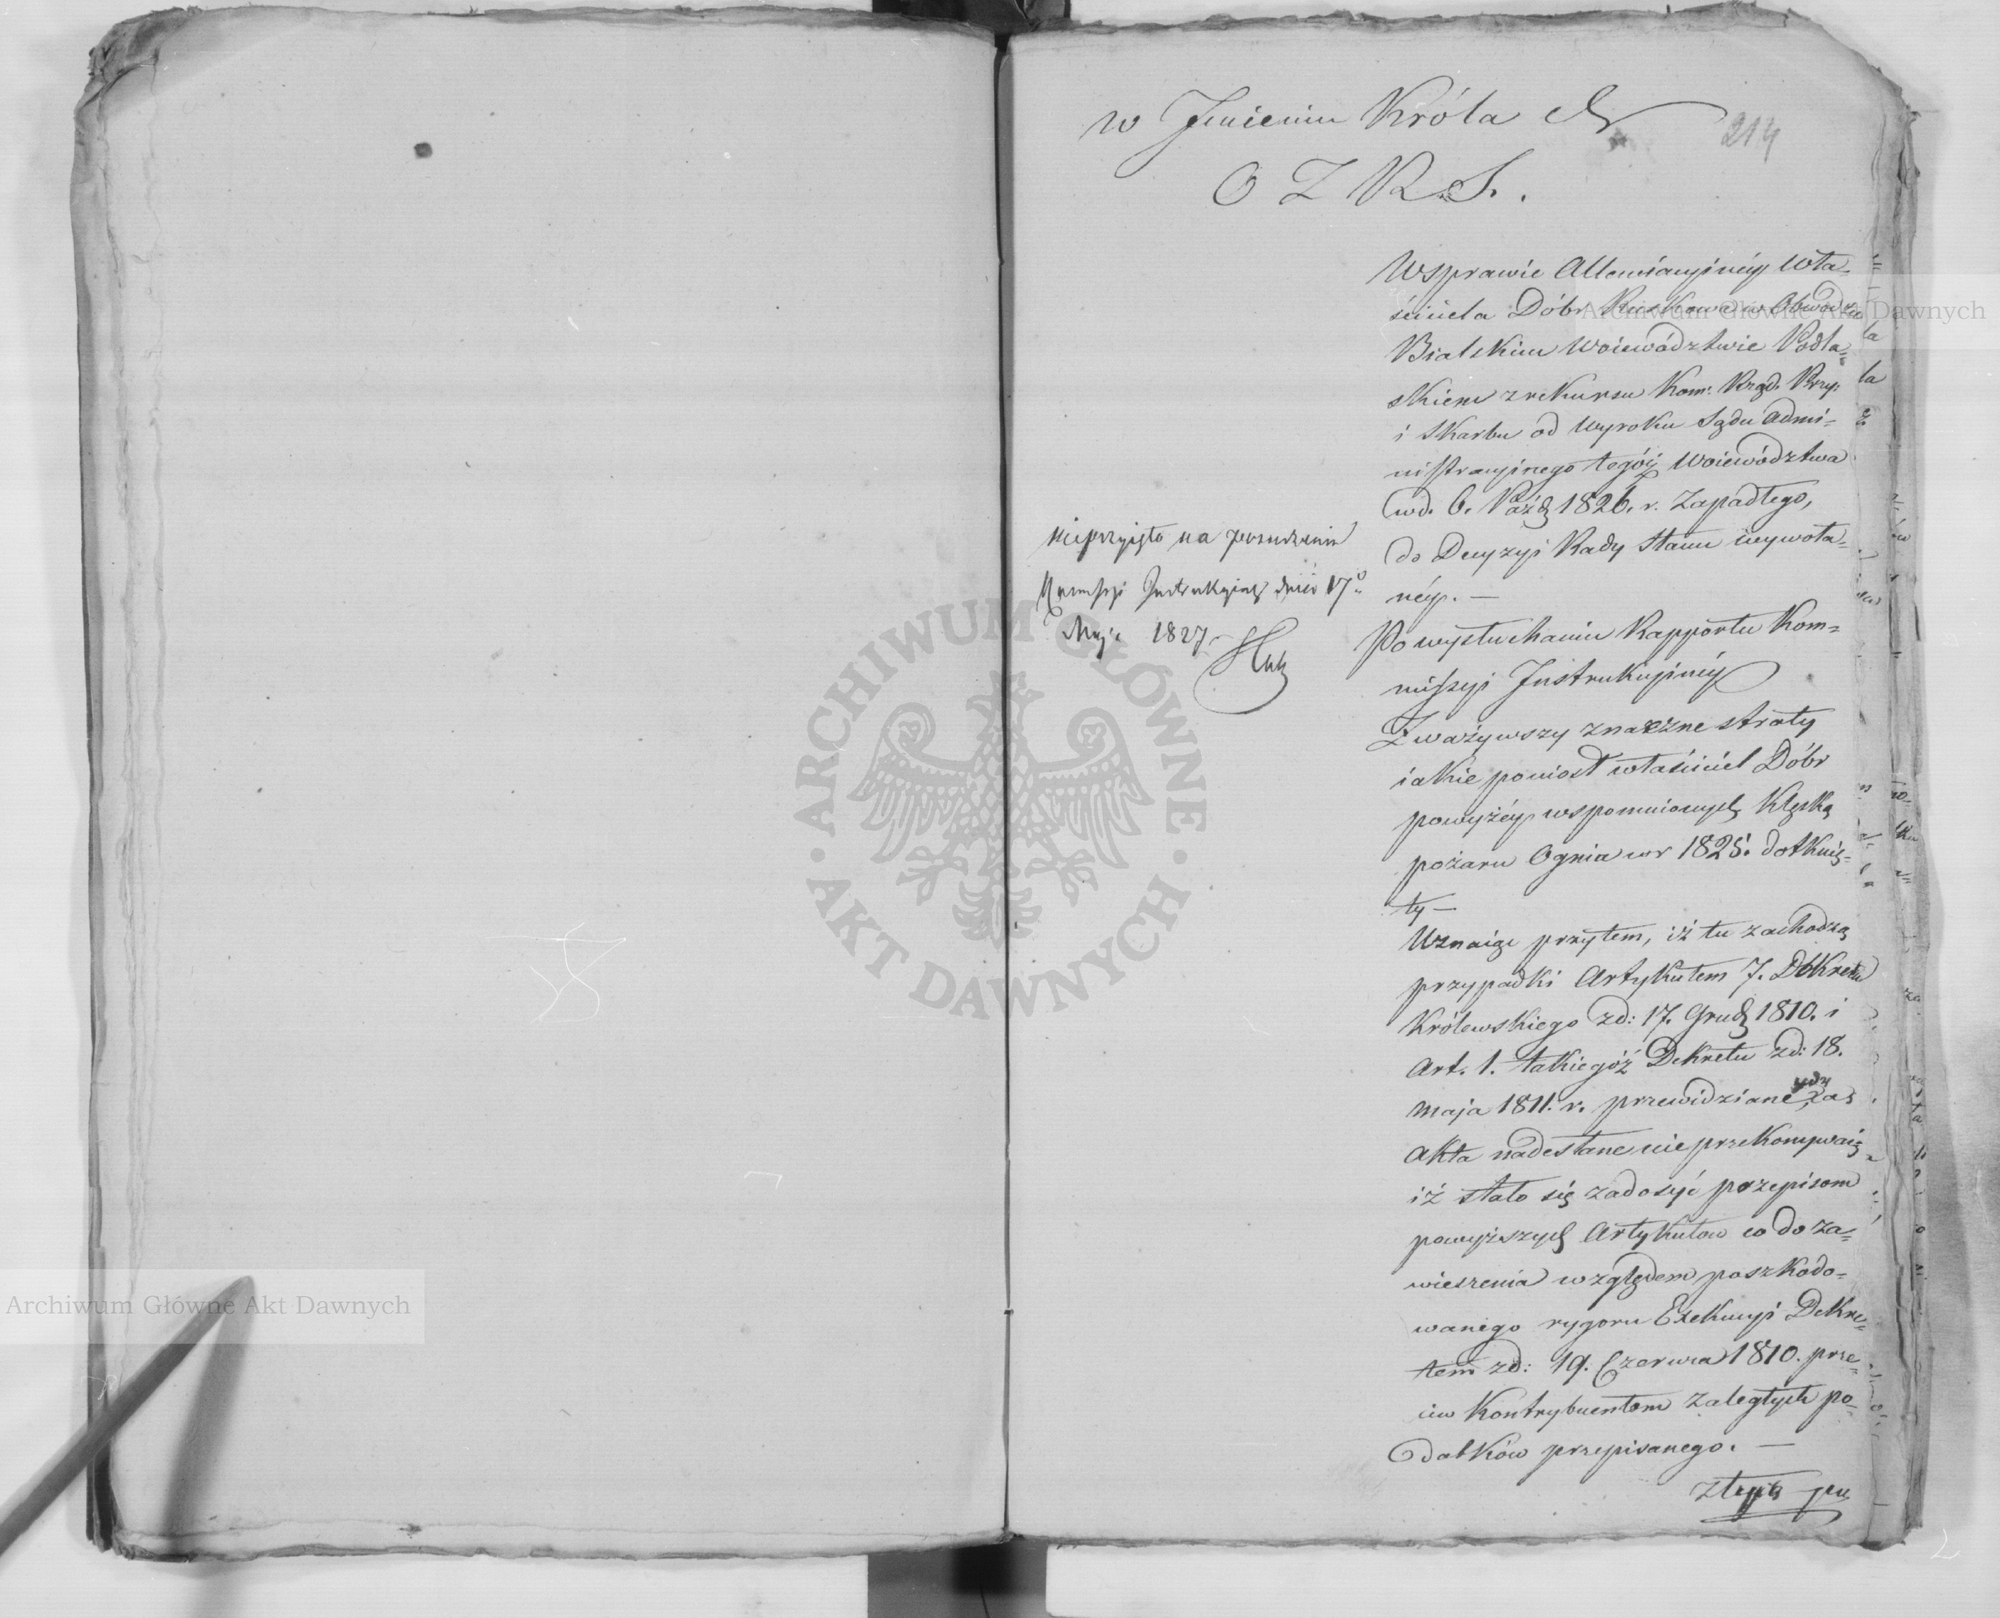 w Imieniu Króla &
214
O Z K. S.
W sprawie Allewiacyjnéy Wła-
ściciela Dóbr Ruskowa w Obwodzie
Bialskim Woiewództwie Podla-
skiem z rekursu Kom: Rząd. Przy:
i Skarbu od Wyroku Sądu Admi-
nistracyjnego tegóż Woiewództwa
w d. 6. Paźdz 1826. r. zapadłego,
do Decyzyi Rady Stanu
néy. —
nieprzyięto na posiedzeniu
Kommissyi Instrukcyinéy dnia 17°
Maja 1827
Po wysłuchaniu Rapportu Kom-
missyi Instrukcyinéy
Zważywszy znaczne straty
iakie poniosł właściciel Dóbr
powyżéy wspomnionych klęską
pożaru Ognia w r 1825. dotknię-
ty —
Uznaiąc przytem, iż tu zachodzą
przypadki Artykułem 7. Dekretu
Królewskiego z d: 17. Grudz 1810. i
Art. 1. takiegóż Dekretu z d: 18.
Maja 1811. r. przewidziane, gdy zaś
Akta nadesłane nie przekonywaią
iż stało się zadosyć przepisom
powyższych Artykułow co do za-
wieszenia względem poszkodo-
wanego rygoru Exekucyi Dekre-
tem z d: 19. Czerwca 1810. prze-
ciw Kontrybuentom zaległych po-
datków przepisanego. —
Archiwum Główne Akt Dawnych
Archiwum Główne Akt Dawnych
ARCHIWUM GŁÓWNE · AKT DAWNYCH ·